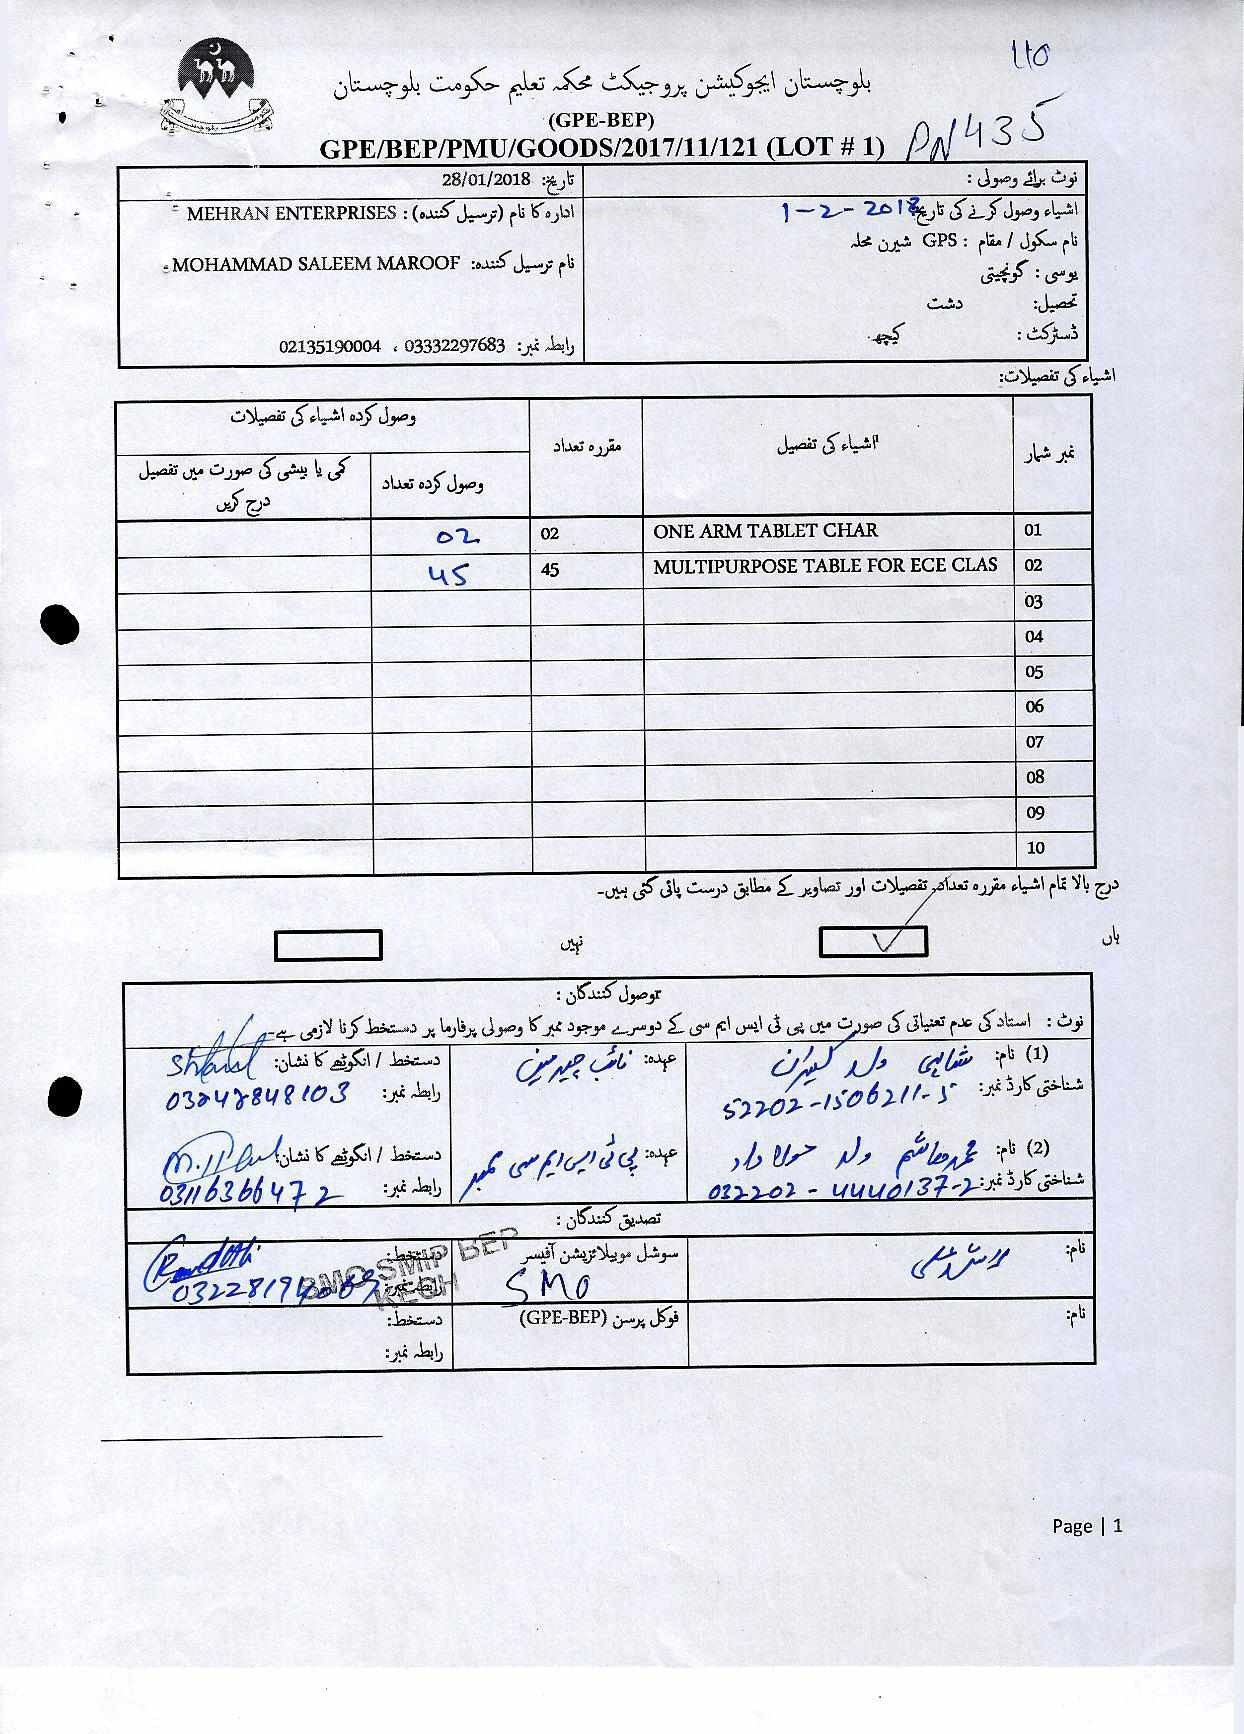 110
بلوچستان ایجوکیشن پروجیکٹ محکمہ تعلیم حکومت بلوچستان
(GPE-BEP)
GPE/BEP/PMU/GOODS/2017/11/121 (LOT # 1) PN 435
نوٹ برائے وصولی :
اشیاء وصول کرنے کی تاریخ 1-2-2018
نام سکول / مقام : GPS شیرن محلہ
یوسی : گونچیتی
تحصیل: دشت
ڈسٹرکٹ : کیچھ
تاریخ: 28/01/2018
ادارہ کا نام (ترسیل کنندہ) : MEHRAN ENTERPRISES
نام ترسیل کنندہ: MOHAMMAD SALEEM MAROOF
رابطہ نمبر: 03332297683 ، 02135190004
اشیاء کی تفصیلات:
نمبر شمار اشیاء کی تفصیل مقررہ تعداد وصول کردہ اشیاء کی تفصیلات
وصول کردہ تعداد کمی یا بیشی کی صورت میں تفصیل درج کریں
01 ONE ARM TABLET CHAR 02 02
02 MULTIPURPOSE TABLE FOR ECE CLAS 45 45
03
04
05
06
07
08
09
10
درج بالا تمام اشیاء مقررہ تعداد، تفصیلات اور تصاویر کے مطابق درست پائی گئی ہیں۔
ہاں ✓ نہیں
وصول کنندگان :
نوٹ : استاد کی عدم تعیناتی کی صورت میں پی ٹی ایس ایم سی کے دوسرے موجود ممبر کا وصولی پرفارما پر دستخط کرنا لازمی ہے۔
(1) نام: ولد عہدہ: نائب چیرمین دستخط / انگوٹھے کا نشان:
شناختی کارڈ نمبر: 52202-1506211-5 رابطہ نمبر: 03242848103
(2) نام: محمد ہاشم ولد داد عہدہ: پی ٹی ایس ایم سی ممبر دستخط / انگوٹھے کا نشان:
شناختی کارڈ نمبر: 032202-4440137-2 رابطہ نمبر: 03116366472
تصدیق کنندگان :
نام: سوشل موبیلائزیشن آفیسر SMO دستخط:
رابطہ نمبر:
SMO SMIP BEP
KECH
نام: فوکل پرسن (GPE-BEP) دستخط:
رابطہ نمبر:
Page | 1